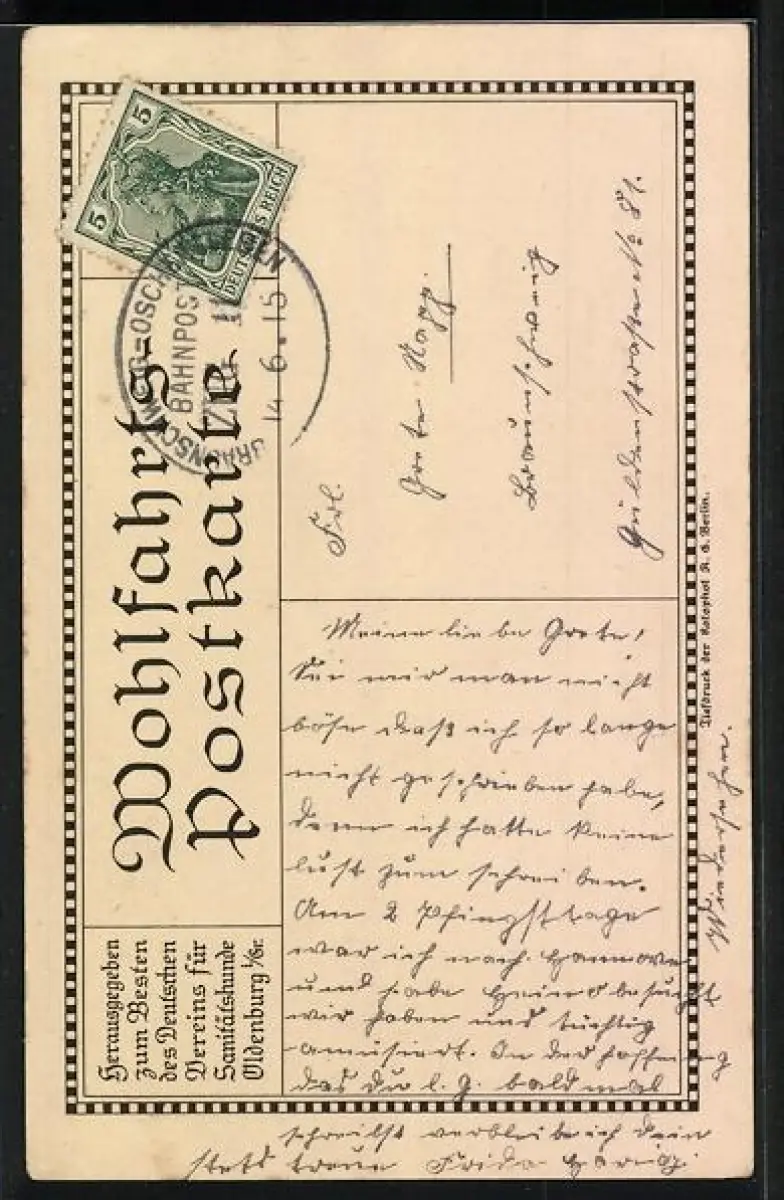 Wohlfahrts-
Postkarte
Herausgegeben
zum Besten
des Deutschen
Vereins für
Sanitätshunde
Oldenburg i/Gr.
5
5
DEUTSCHES REICH
BAHNPOST
ZUG
14 6 15
Frl.
Grete
Braunschweig
Güldenstrasse No 81.
Tiefdruck der Rotophot A. G. Berlin.
Meine liebe Grete!
Sei mir man nicht
böse daß ich so lange
nicht geschrieben habe,
denn ich hatte keine
lust zum schreiben.
Am 2 Pfingsttage
war ich nach Hannover
und habe besucht
wir haben uns tüchtig
amüsiert. In der Hoffnung
das Du l. G. bald mal
schreibst verbleibe ich dein
stets treue Frida
Wiedersehen.